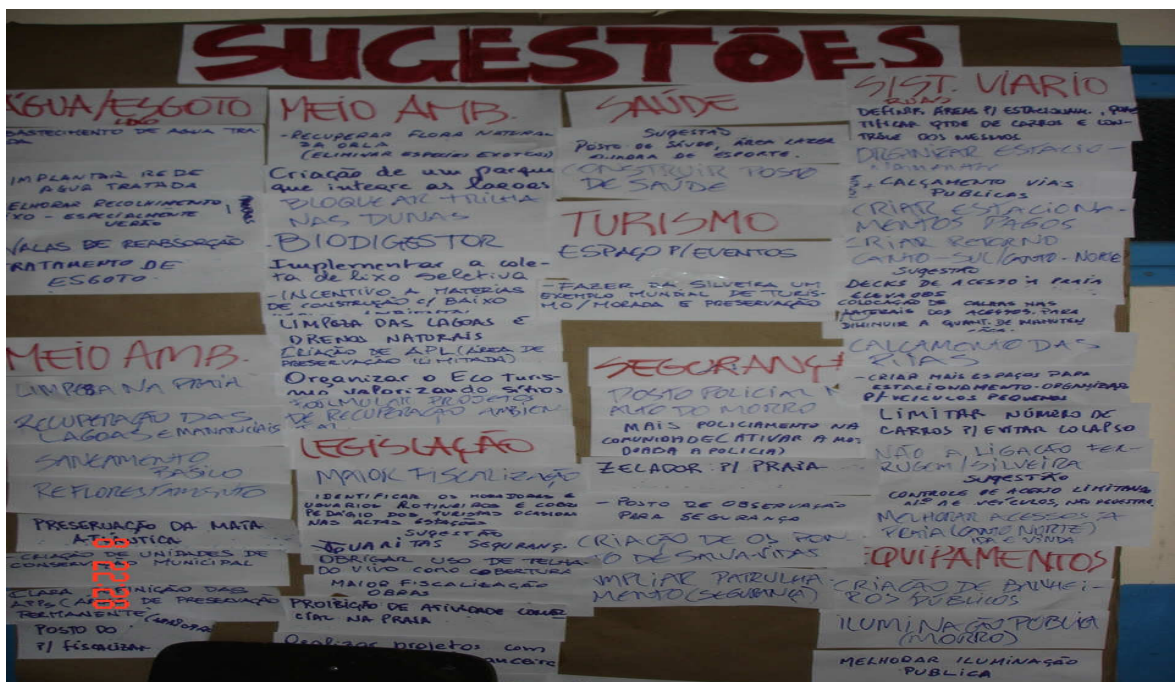 SUGESTÕES
ÁGUA/ESGOTO
LIXO
ABASTECIMENTO DE AGUA TRA-
DA
IMPLANTAR REDE
AGUA TRATADA
MELHORAR RECOLHIMENTO
LIXO - ESPECIALMENTE
VERÃO
VALAS DE REABSORÇÃO
TRATAMENTO DE
ESGOTO
MEIO AMB.
LIMPEZA NA PRAIA
RECUPERAÇÃO DAS
LAGOAS E MANANCIAIS
SANEAMENTO
BÁSICO
REFLORESTAMENTO
PRESERVAÇÃO DA MATA
ATLÂNTICA
CRIAÇÃO DE UNIDADES DE
CONSERV MUNICIPAL
CLARA DAS
DE PRESERVAÇÃO
PERMANENTE
POSTO DO
P/ FISCALIZAR
MEIO AMB.
-RECUPERAR FLORA NATURAL
DA ORLA
(ELIMINAR ESPECIES EXOTICAS)
Criação de um parque
que integre as lagoas
BLOQUEAR TRILHA
NAS DUNAS
BIODIGESTOR
Implementar a cole-
ta de lixo seletiva
-INCENTIVO A MATERIAS
DE CONSTRUÇÃO C/ BAIXO
LIMPEZA DAS LAGOAS E
DRENOS NATURAIS
CRIAÇÃO DE APL (ÁREA DE
PRESERVAÇÃO LIMITADA)
Organizar o Eco Turis-
mo valorizando sítios
ESTIMULAR PROJETOS
DE RECUPERAÇÃO AMBIEN
TAL
LEGISLAÇÃO
MAIOR FISCALIZAÇÃO
IDENTIFICAR OS MORADORES E
USUARIOS ROTINEIROS E COBRAR
PEDÁGIO DOS TURISTAS OCASION
NAS ALTAS ESTAÇÕES
SUGESTÃO
GUARITAS SEGURANÇ.
OBRIGAR USO DE TELHA-
DO VIVO COMO COBERTURA
MAIOR FISCALIZAÇÃO
OBRAS
PROIBIÇÃO DE ATIVIDADE COMER
CIAL NA PRAIA
Realizar projetos com
SAÚDE
SUGESTÃO
POSTO DE SAÚDE, ÁREA LAZER
QUADRA DE ESPORTE.
CONSTRUIR POSTO
DE SAÚDE
TURISMO
ESPAÇO P/EVENTOS
-FAZER DA SILVEIRA UM
EXEMPLO MUNDIAL DE TURIS-
MO/MORADA E PRESERVAÇÃO
SEGURANÇA
POSTO POLICIAL N
ALTO DO MORRO
MAIS POLICIAMENTO NA
COMUNIDADE (ATIVAR A MO
DA POLICIA)
ZELADOR P/ PRAIA
- POSTO DE OBSERVAÇÃO
PARA SEGURANÇA
CRIAÇÃO DE 05 PON
TO DE SALVA-VIDAS
AMPLIAR PATRULHA-
MENTO (SEGURANÇA)
SIST. VIARIO
RUAS
DEFINIR ÁREAS P/ ESTACIONAM.,
TIFICAR QTDE DE CARROS E CON-
TROLE DOS MESMOS
ORGANIZAR ESTACIO-
NAMENTO
CALÇAMENTO VIAS
PUBLICAS
CRIAR ESTACIONA-
MENTOS PAGOS
CRIAR RETORNO
CANTO-SUL/CANTO-NORTE
SUGESTÃO
DECKS DE ACESSO À PRAIA
ELEVADOS
COLOCAÇÃO DE CALHAS NAS
LATERAIS DOS ACESSOS, PARA
DIMINUIR A QUANT. DE MANUTEN
ÇÃO.
CALÇAMENTO DAS
RUAS
-CRIAR MAIS ESPAÇOS PARA
ESTACIONAMENTO-ORGANIZAR
P/VEICULOS PEQUENOS
LIMITAR NÚMERO DE
CARROS P/ EVITAR COLAPSO
NÃO A LIGAÇÃO FER-
RUGEM/SILVEIRA
SUGESTÃO
CONTROLE DE ACESSO LIMITANDO
Nº DE VEÍCULOS, NÃO PEDESTRE.
MELHORAR ACESSOS A
PRAIA (CANTO NORTE)
IDA E VINDA
EQUIPAMENTOS
CRIAÇÃO DE BANHEI-
ROS PÚBLICOS
ILUMINAÇÃO PÚBLICA
(MORRO)
MELHORAR ILUMINAÇÃO
PUBLICA